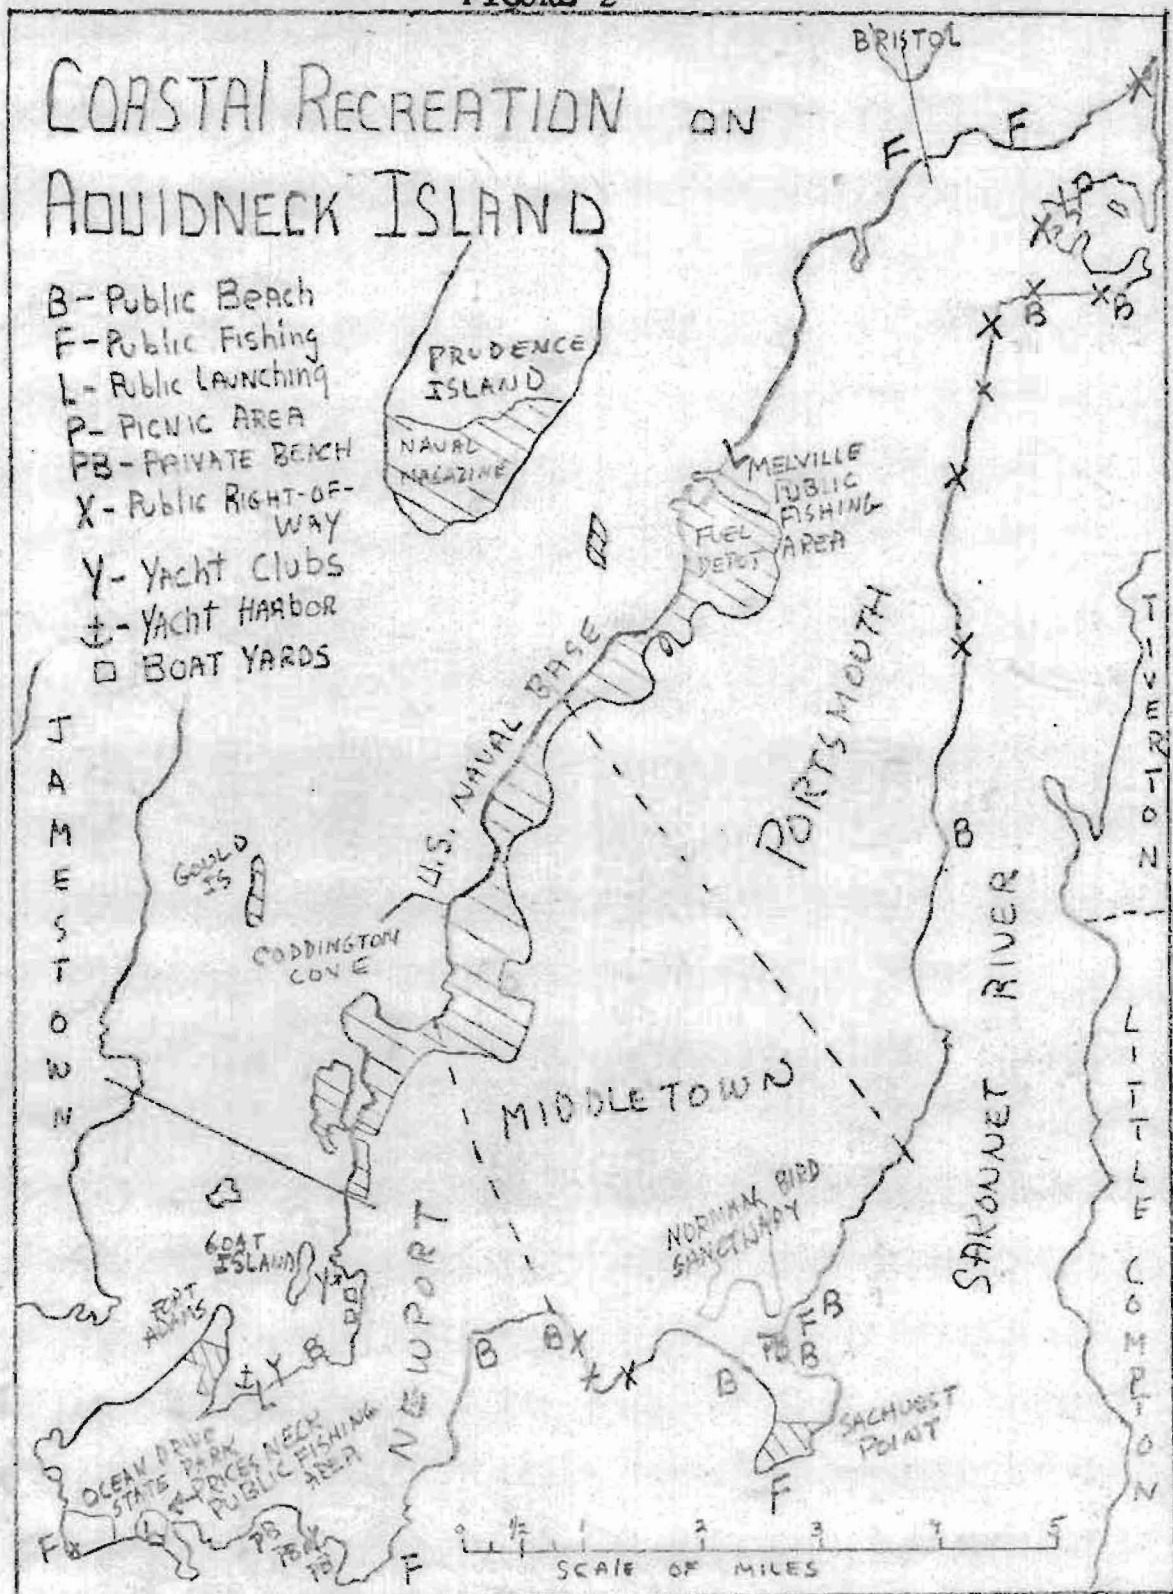 FIGURE 2
COASTAL RECREATION ON
AQUIDNECK ISLAND
B - Public Beach
F - Public Fishing
L - Public Launching
P - Picnic Area
PB - Private Beach
X - Public Right-of-
Way
Y - Yacht Clubs
⚓ - Yacht Harbor
□ Boat Yards
BRISTOL
F
F
X
X
P
X
X
X
B
B
X
X
X
X
PRUDENCE
ISLAND
NAVAL
MAGAZINE
L
MELVILLE
PUBLIC
FISHING
AREA
FUEL
DEPOT
U.S. NAVAL BASE
PORTSMOUTH
TIVERTON
JAMESTOWN
GOULD
IS
CODDINGTON
COVE
B
SAKONNET RIVER
LITTLE COMPTON
MIDDLETOWN
NEWPORT
NORMAN BIRD
SANCTUARY
GOAT
ISLAND
Y
FORT
ADAMS
L
Y
B
B
B
X
X
X
B
B
F
PB
B
SACHUEST
POINT
F
OCEAN DRIVE
STATE PARK
PRICES NECK
PUBLIC FISHING
AREA
F
X
L
PB
PB
PB
F
0 ½ 1 2 3 4 5
SCALE OF MILES